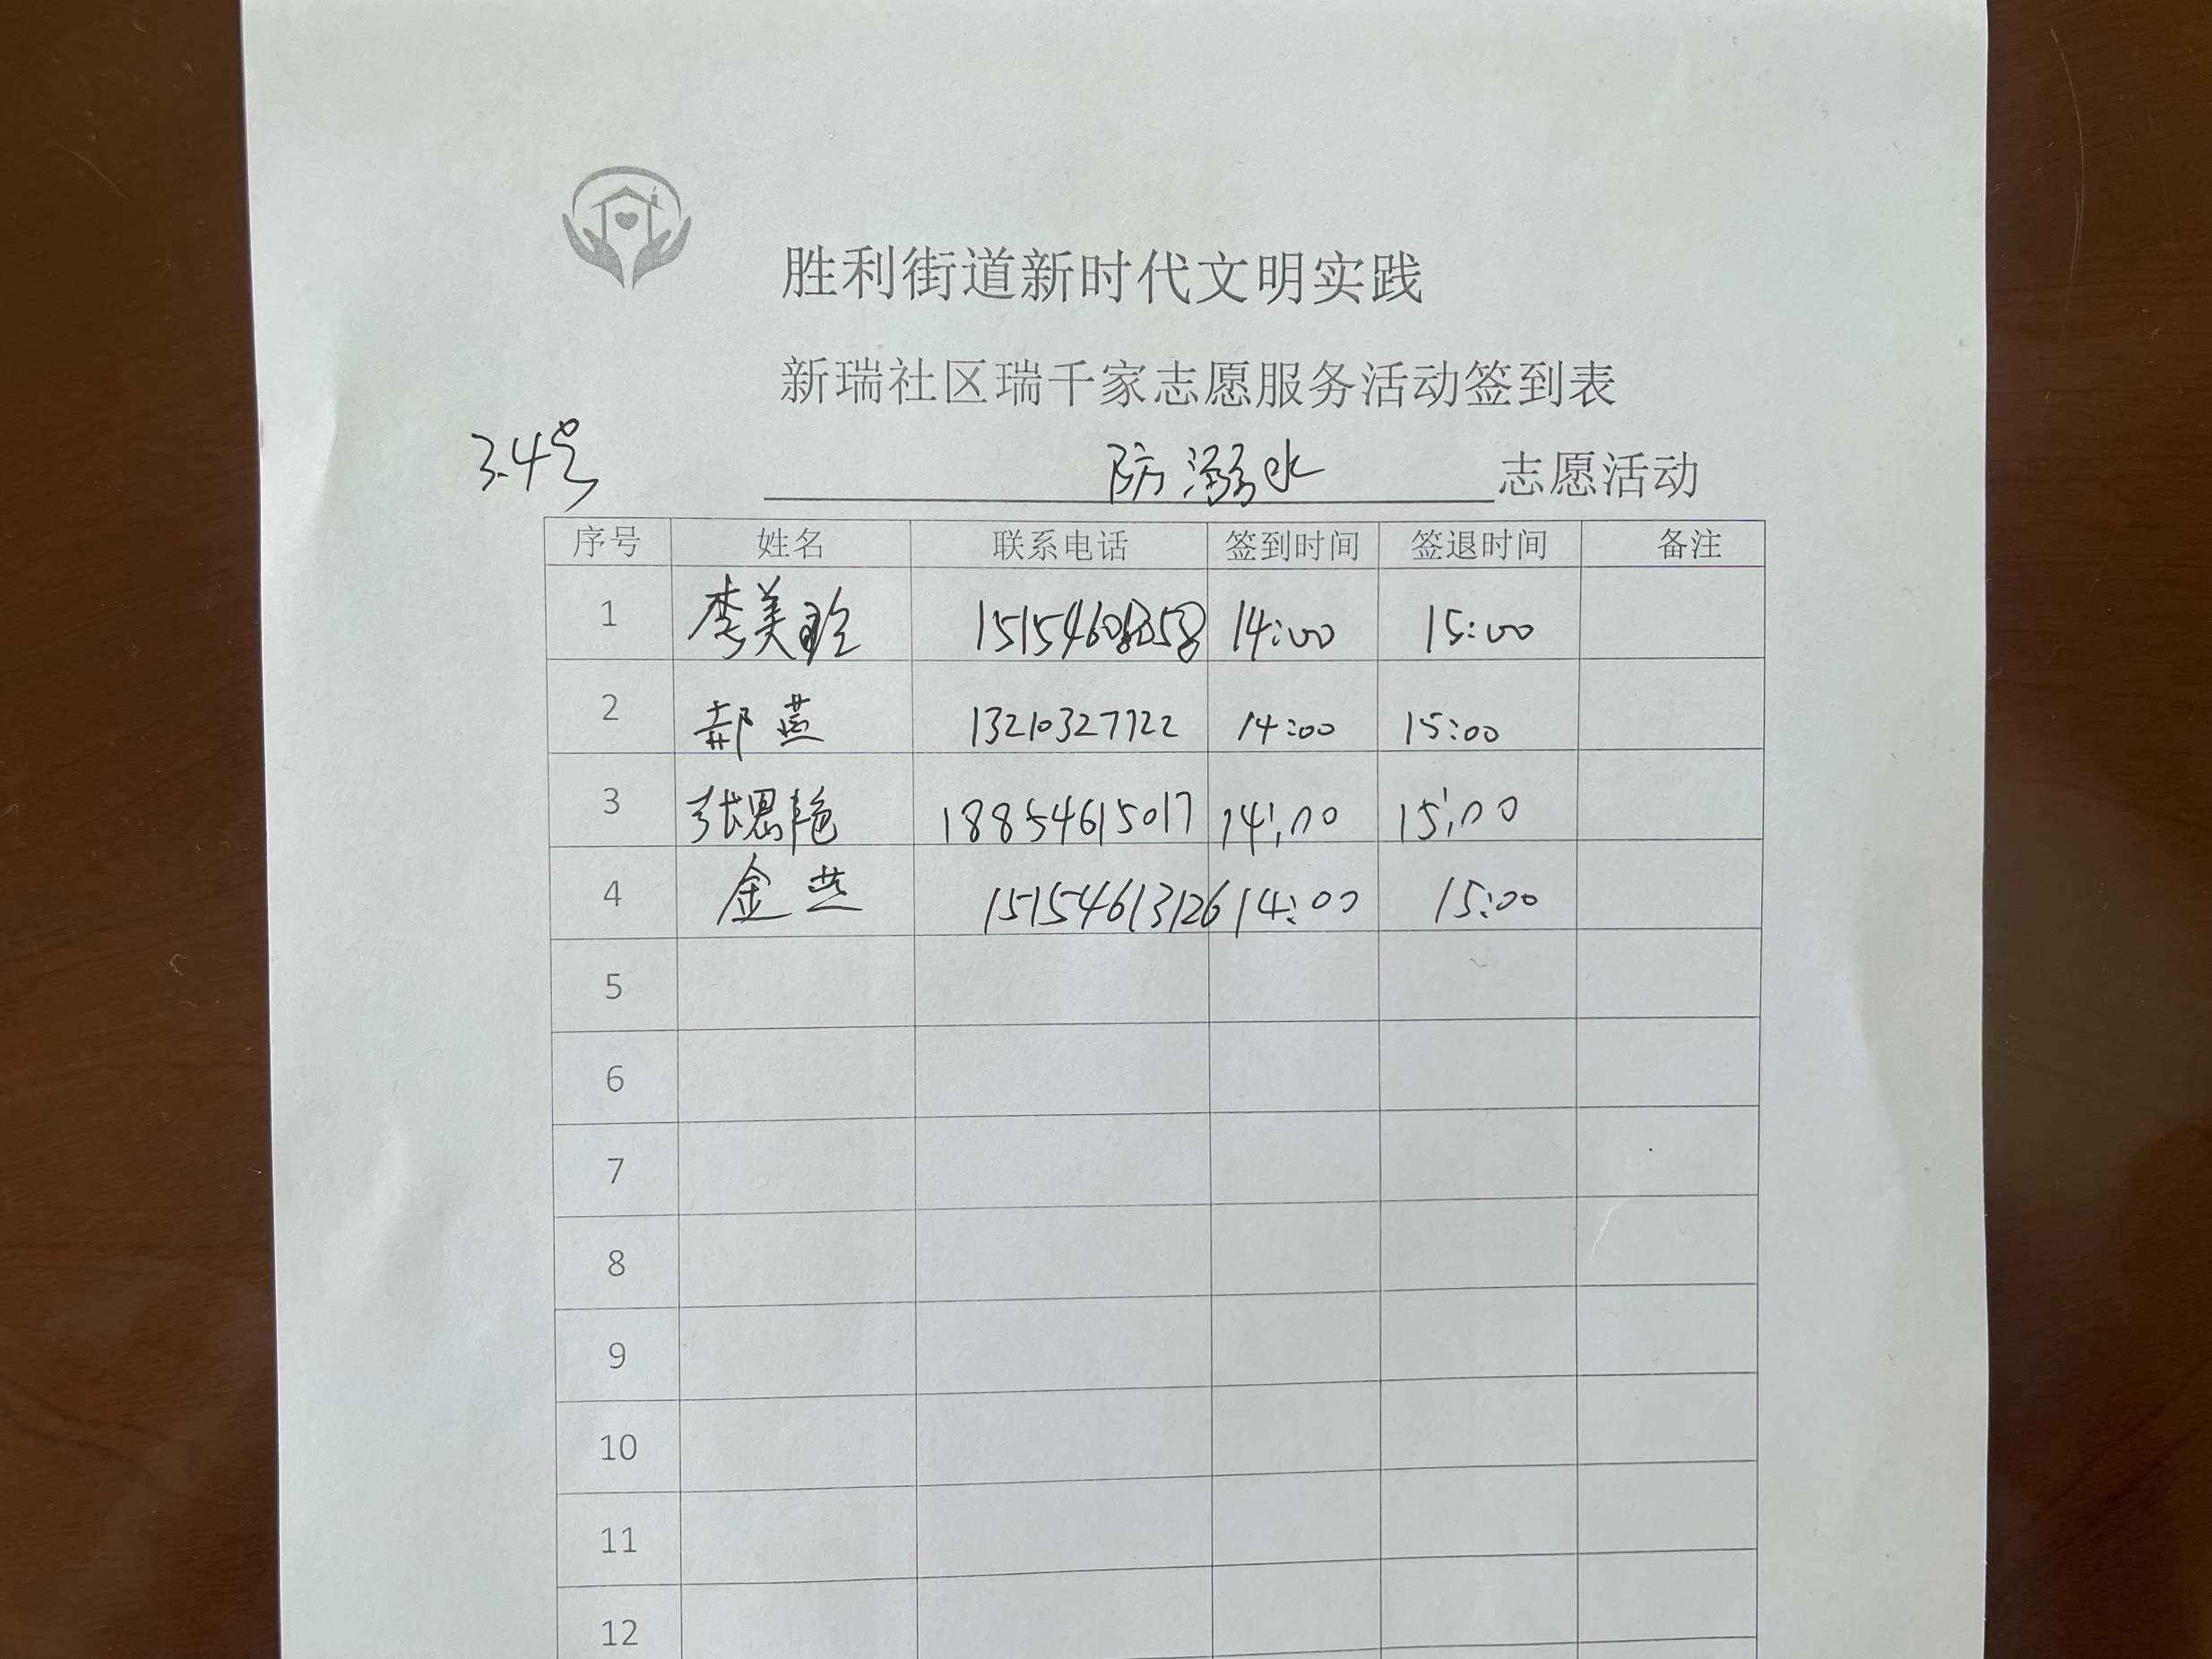 胜利街道新时代文明实践
新瑞社区瑞千家志愿服务活动签到表
3.4号 防溺水 志愿活动
序号 姓名 联系电话 签到时间 签退时间 备注
1 李美玲 14:00 15:00
2 郝燕 13210327722 14:00 15:00
3 张恩艳 18854615017 14:00 15:00
4 金燕 15154613126 14:00 15:00
5
6
7
8
9
10
11
12